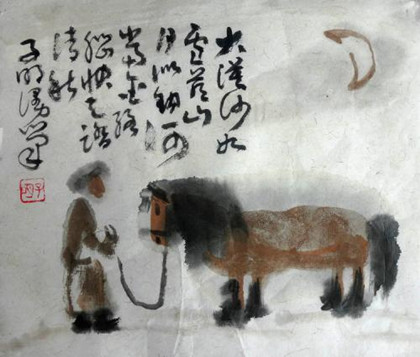 大漠沙如
雪燕山
月似钩何
当金络
脑快走踏
清秋
子明